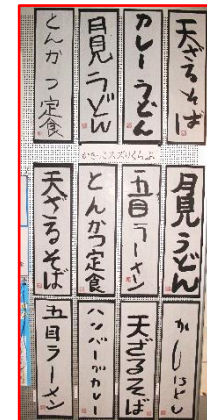 天ざるそば
カレーうどん
月見うどん
とんかつ定食
月見うどん
五目ラーメン
とんかつ定食
天ざるそば
天ざるそば
ハンバーグカレー
五目ラーメン